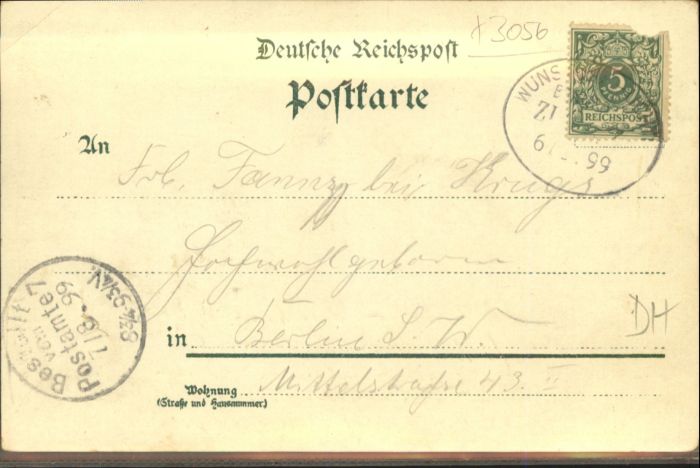 x3056
Deutsche Reichspost
Postkarte
5
REICHSPOST
WUNS
ZI
6/ 99
An
Frl. Fanny bei Krugs
Hochwohlgeboren
in Berlin S. W.
Mittelstraße 43. I
Wohnung
(Straße und Hausnummer)
Bestellt
vom
Postamte 7
7/8. 99
8¾-9¾V.
DH